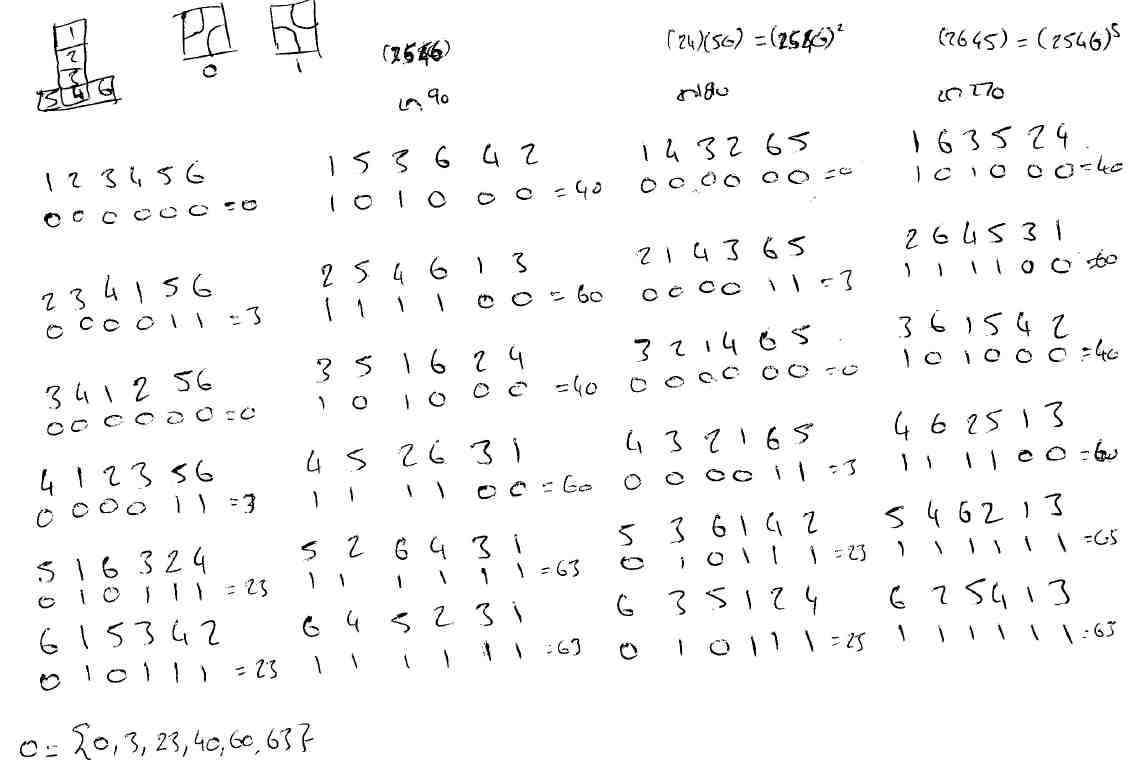 1
2
3
5 4 6
0
1
(2546)
(24)(56) = (2546)²
(2645) = (2546)⁵
90
180
270
1 2 3 4 5 6
1 5 3 6 4 2
1 4 3 2 6 5
1 6 3 5 2 4
0 0 0 0 0 0 = 0
1 0 1 0 0 0 = 40
0 0 0 0 0 0 = 0
1 0 1 0 0 0 = 40
2 3 4 1 5 6
2 5 4 6 1 3
2 1 4 3 6 5
2 6 4 5 3 1
0 0 0 0 1 1 = 3
1 1 1 1 0 0 = 60
0 0 0 0 1 1 = 3
1 1 1 1 0 0 = 60
3 4 1 2 5 6
3 5 1 6 2 4
3 2 1 4 6 5
3 6 1 5 4 2
0 0 0 0 0 0 = 0
1 0 1 0 0 0 = 40
0 0 0 0 0 0 = 0
1 0 1 0 0 0 = 40
4 1 2 3 5 6
4 5 2 6 3 1
4 3 2 1 6 5
4 6 2 5 1 3
0 0 0 0 1 1 = 3
1 1 1 1 0 0 = 60
0 0 0 0 1 1 = 3
1 1 1 1 0 0 = 60
5 1 6 3 2 4
5 2 6 4 3 1
5 3 6 1 4 2
5 4 6 2 1 3
0 1 0 1 1 1 = 23
1 1 1 1 1 1 = 63
0 1 0 1 1 1 = 23
1 1 1 1 1 1 = 63
6 1 5 3 4 2
6 4 5 2 3 1
6 3 5 1 2 4
6 2 5 4 1 3
0 1 0 1 1 1 = 23
1 1 1 1 1 1 = 63
0 1 0 1 1 1 = 23
1 1 1 1 1 1 = 63
0 = {0, 3, 23, 40, 60, 63}